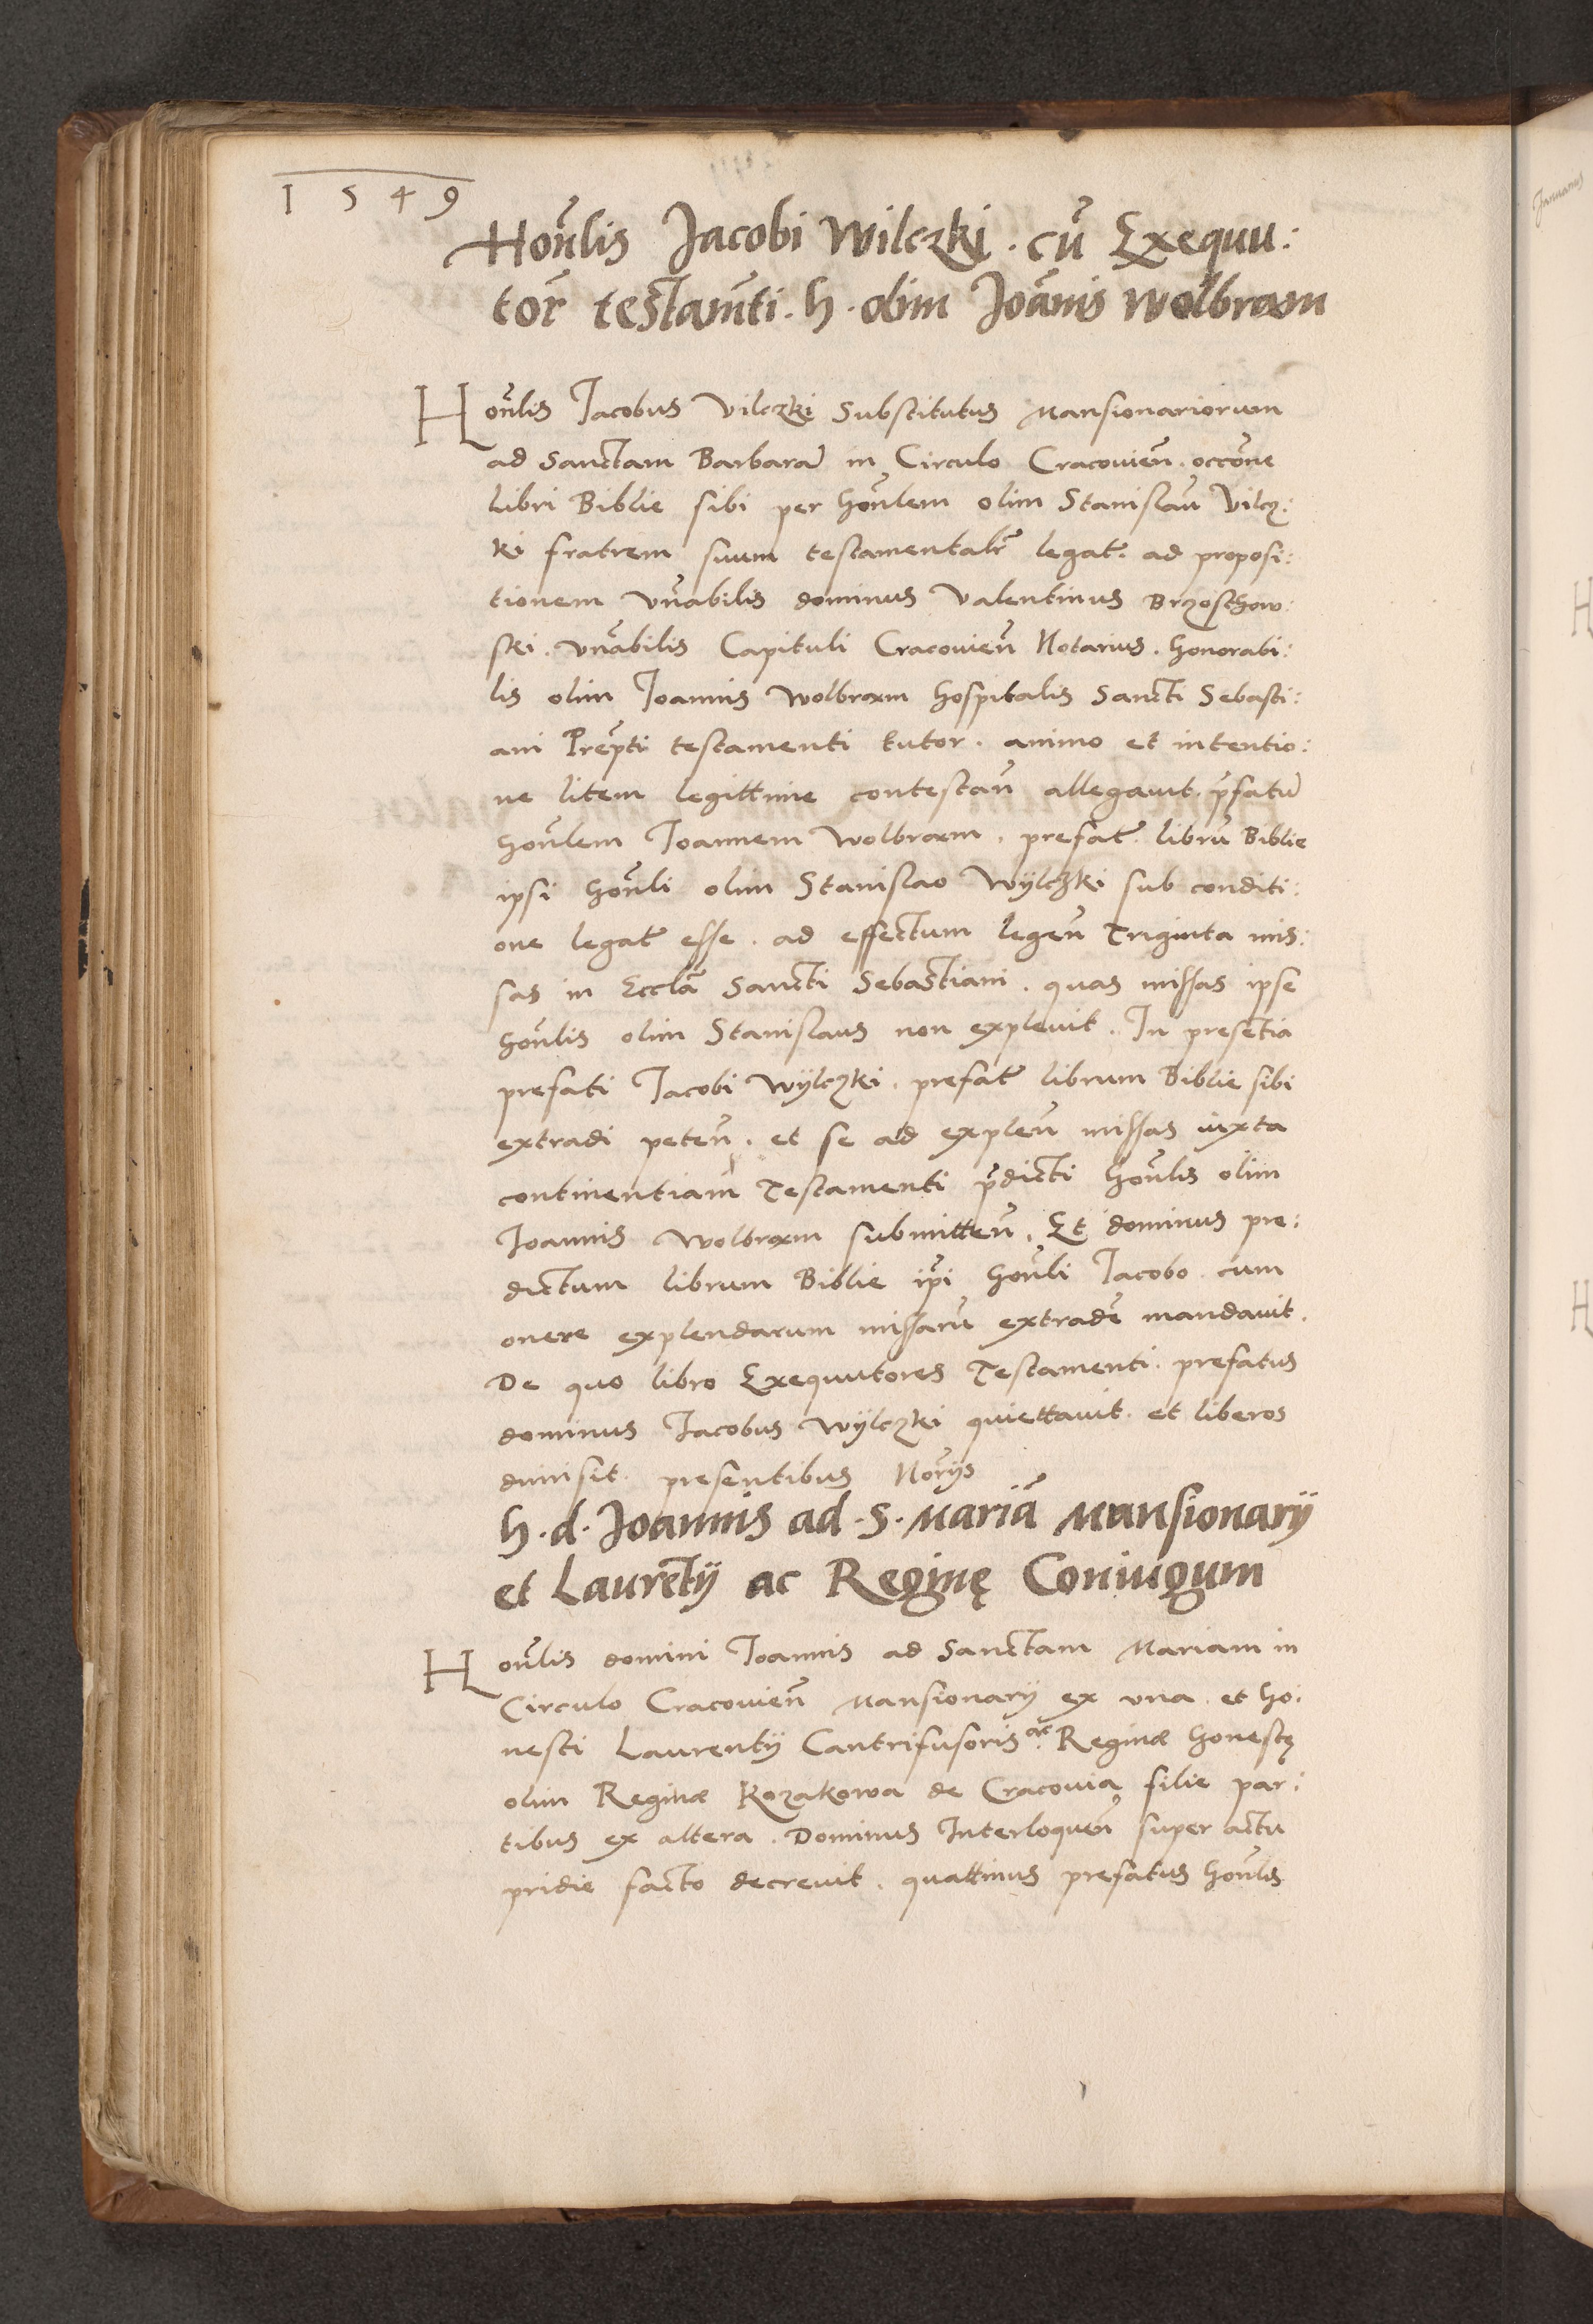 1 5 4 9
Hon̄lis Jacobi Wilczki . cū Exequu:
tor̄ testam̄ti . h . olim Joān̄is Wolbram
Hon̄lis Jacobus Vilczki Substitutus Mansionariorum
ad Sanctam Barbarā in Circulo Cracouien̄ . occōne
libri Biblie sibi per hon̄lem olim Stanislaū Vilcz:
ki fratrem suum testamentalr̄ legat̄ . ad proposi:
tionem Vn̄abilis dominus Valentinus Brzoschow:
ski . Vn̄abilis Capituli Cracouien̄ Notarius . honorabi:
lis olim Joannis Wolbram hospitalis Sancti Sebasti:
ani Prēpti testamenti tutor . animo et intentio:
ne litem legittime contestan̄ allegauit . p̄fatū
hon̄lem Joannem Wolbram . prefat̄ . librū Biblie
ipsi hon̄li olim Stanislao Wÿlczki sub conditi:
one legat̄ esse . ad effectum legen̄ Triginta mis:
sas in Ecclā Sancti Sebastiani . quas missas ipse
hon̄lis olim Stanislaus non expleuit . In presētia
prefati Jacobi Wÿlczki . prefat̄ librum Biblie sibi
extradi peten̄ . et se ad explen̄ missas iuxta
continentiam Testamenti p̄dicti hon̄lis olim
Joannis Wolbram submitten̄ . Et dominus pre:
dictum librum Biblie ip̄i hon̄li Jacobo cum
onere explendarum missarū extradē mandauit .
De quo libro Exequutores Testamenti . prefatus
dominus Jacobus Wÿlczki quiettauit . et liberos
dimisit . presentibus Nor̄ÿs
h . d . Joannis ad . S . Mariā Mansionarÿ
et Laurētÿ ac Reginę Coniugum
Hon̄lis domini Joannis ad Sanctam Mariam in
Circulo Cracouien̄ Mansionarÿ ex vna . et ho:
nesti Laurentÿ Cantrifusoris ac Reginæ honestę
olim Reginæ Kozakowa de Cracouia filie par:
tibus ex altera . Dominus Interloquen̄ super actu
pridie facto decreuit . quattinus prefatus hon̄lis